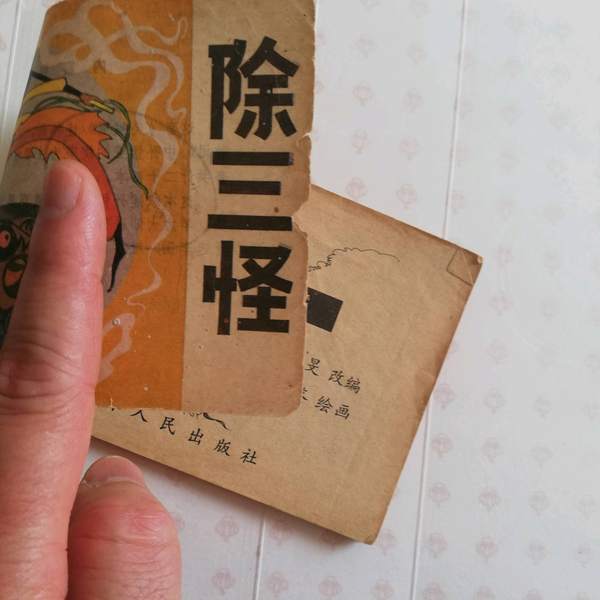 除三怪
旻 改编
绘画
人民出版社